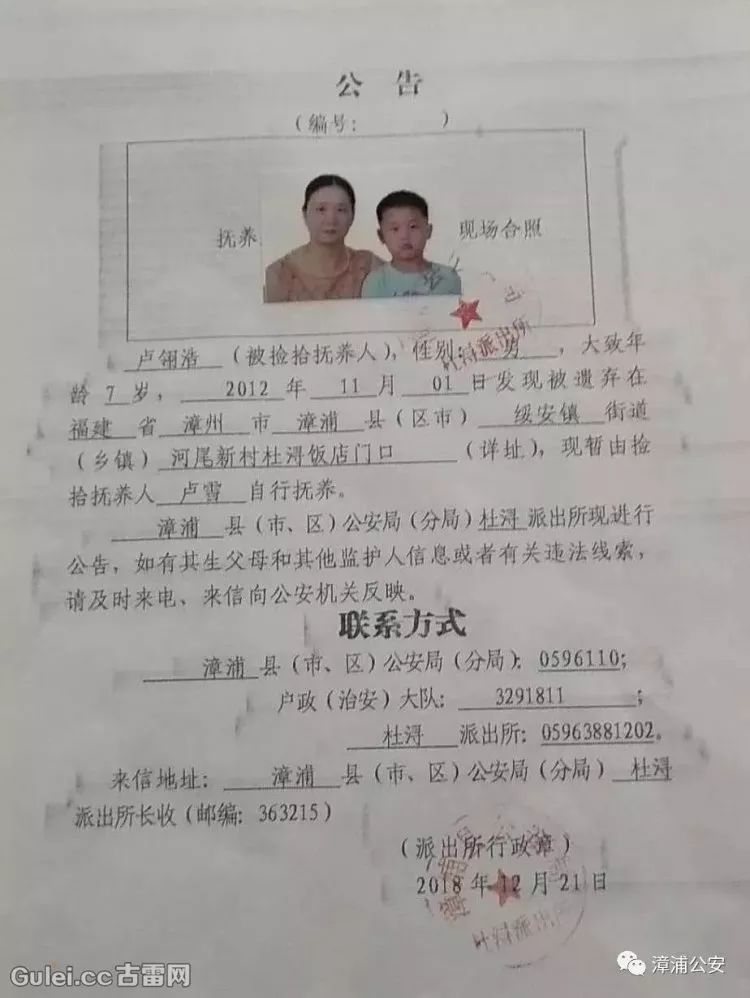 公 告
（编号：　　　　）
抚养　　现场合照
卢翎浩 （被捡拾抚养人），性别：男 ，大致年
龄 7 岁， 2012 年 11 月 01 日发现被遗弃在
福建 省 漳州 市 漳浦 县（区市） 绥安镇 街道
（乡镇）河尾新村杜浔饭店门口 （详址），现暂由捡
拾抚养人 卢雪 自行抚养。
漳浦 县（市、区）公安局（分局）杜浔 派出所现进行
公告，如有其生父母和其他监护人信息或者有关违法线索，
请及时来电、来信向公安机关反映。
联系方式
漳浦 县（市、区）公安局（分局）：0596110；
户政（治安）大队： 3291811 ；
杜浔 派出所：05963881202。
来信地址： 漳浦 县（市、区）公安局（分局） 杜浔
派出所长收（邮编：363215）
（派出所行政章）
2018 年 12 月 21 日
杜浔派出所
漳浦公安
Gulei.cc古雷网